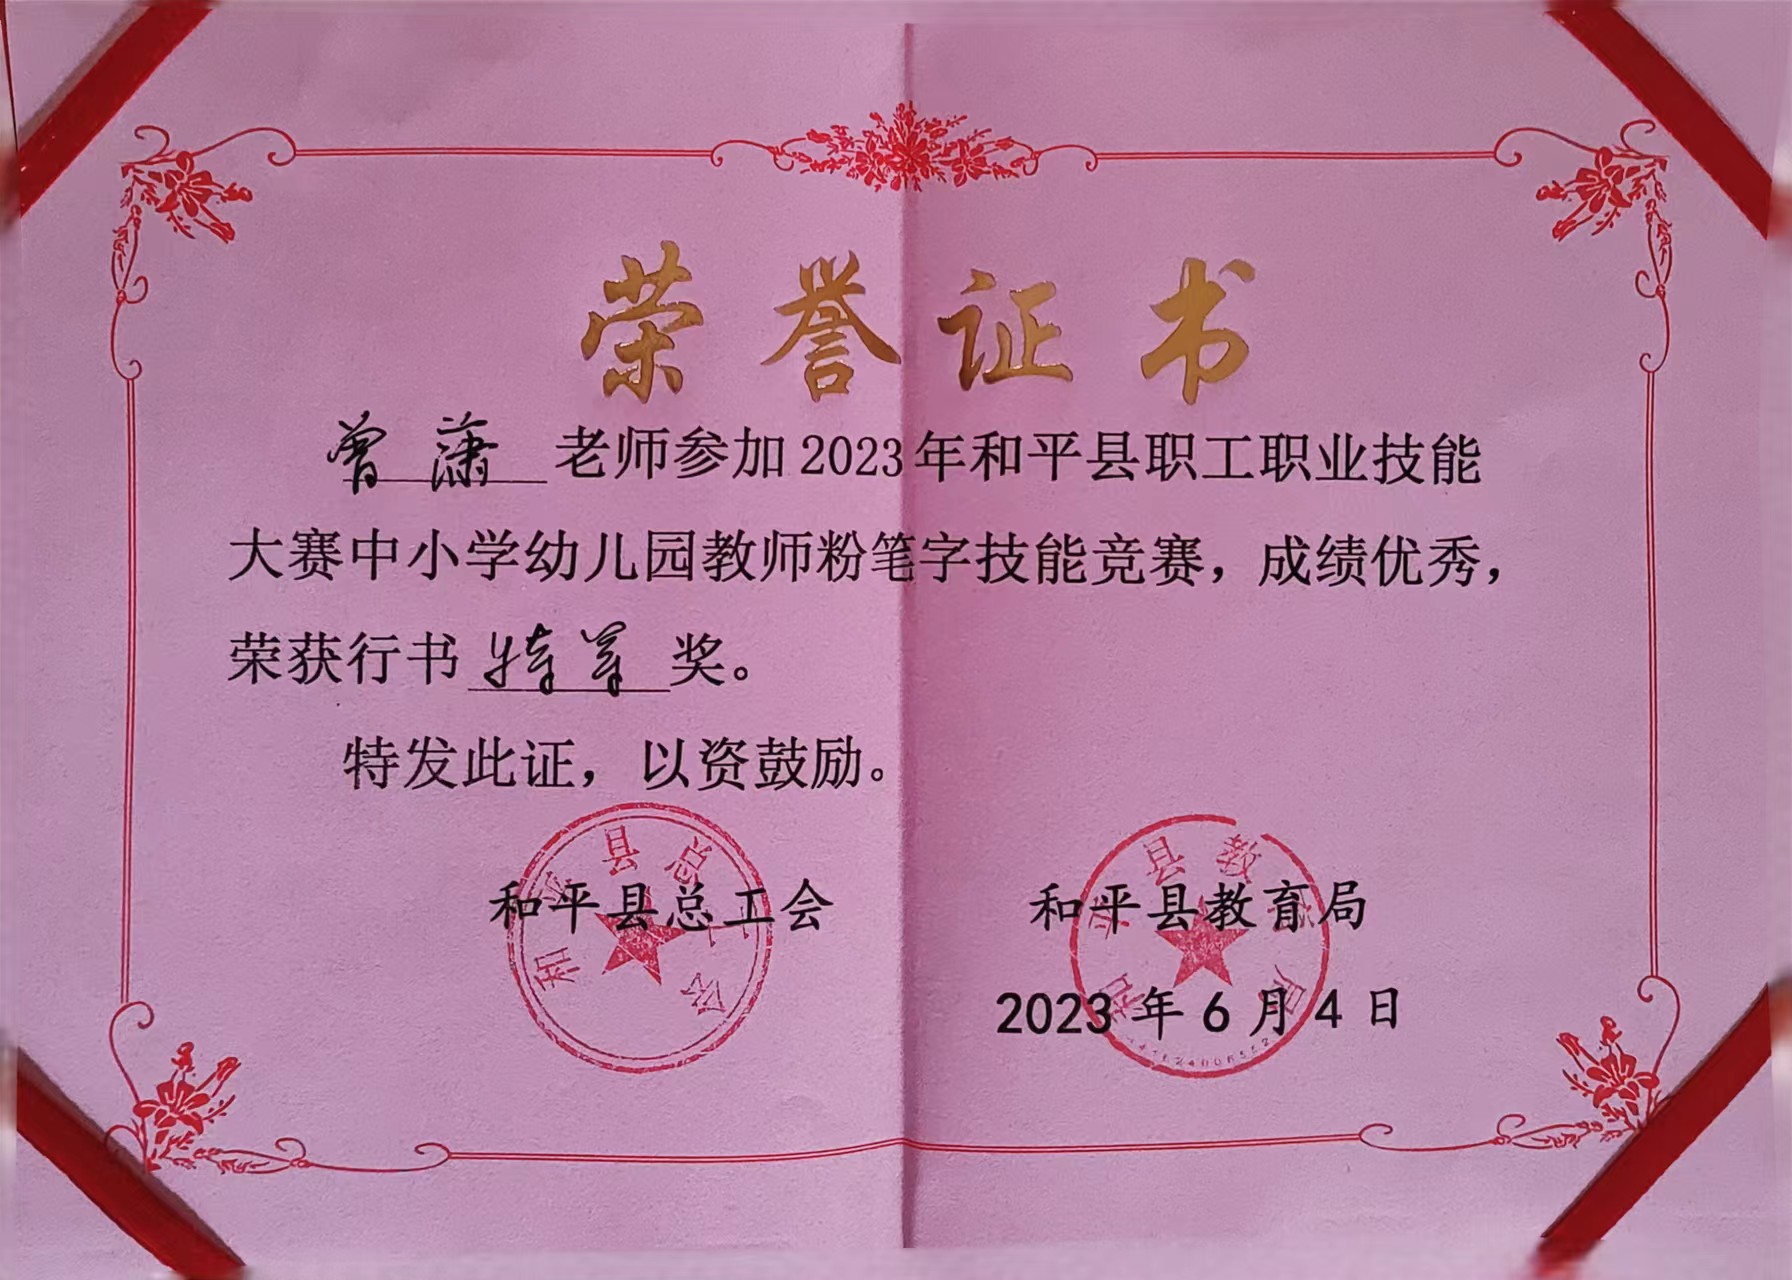 荣誉证书
曾 潇 老师参加2023年和平县职工职业技能
大赛中小学幼儿园教师粉笔字技能竞赛，成绩优秀，
荣获行书 特等 奖。
特发此证，以资鼓励。
和平县总工会 和平县教育局
2023年6月4日
和平县总工会
和平县教育局